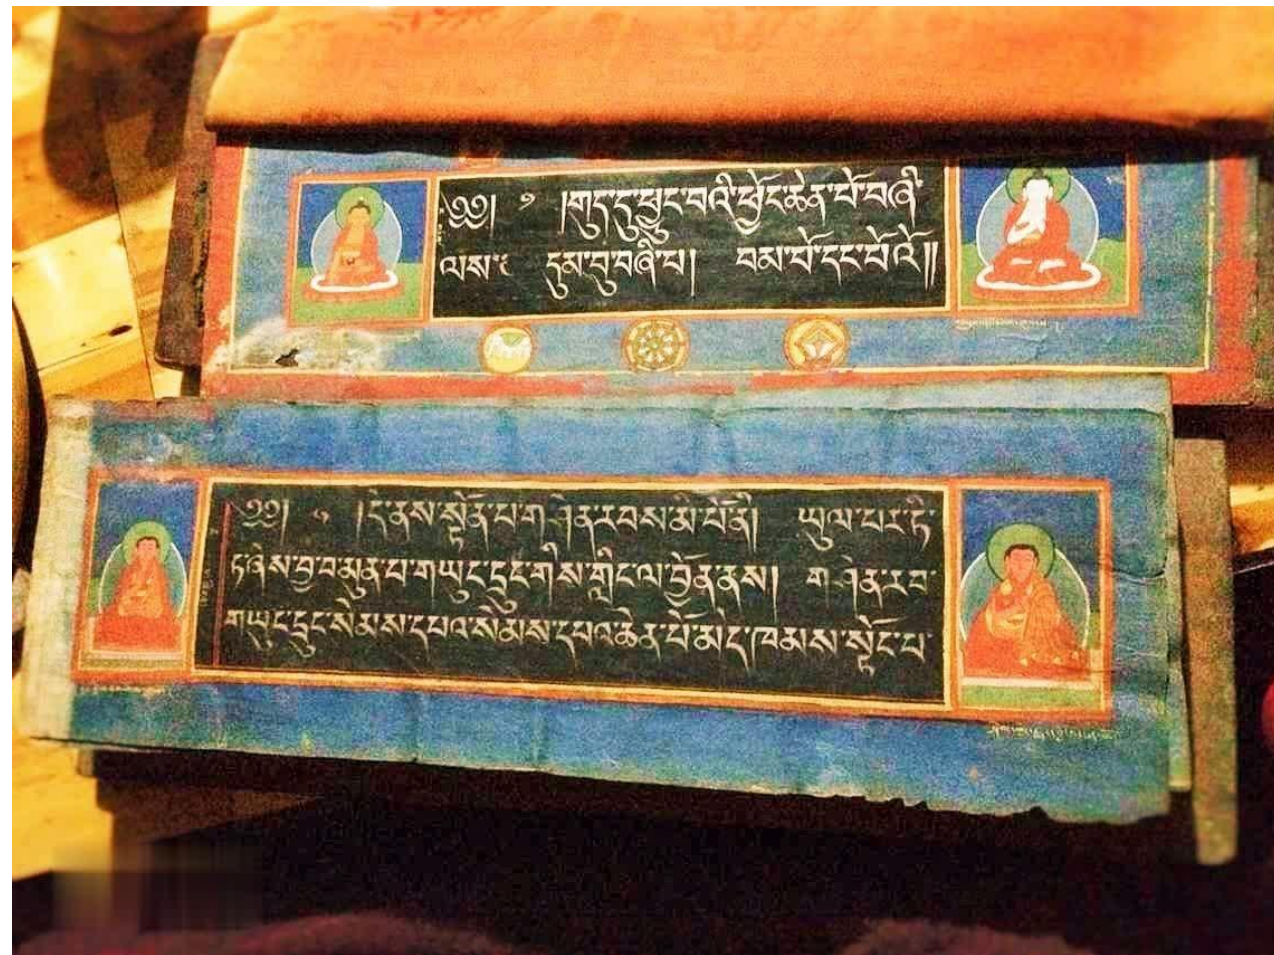 ༄༅། ། །གུད་དུ་ཕྱུང་བའི་ཕྱོང་ཆེན་པོ་བཞི་
ལས་ དུམ་བུ་བཞི་པ། བམ་པོ་དང་པོའོ།།
༄༅། ། །དེ་ནས་སྟོན་པ་གཤེན་རབས་མི་པོ་ནི། ཡུལ་པར་ཏི་
ཏ་ཞེས་བྱ་བ་མུན་པ་གཡུང་དྲུང་གིས་གླིང་ལ་བྱོན་ནས། གཤེན་རབ་
གཡུང་དྲུང་སེམས་དཔའ་སེམས་དཔའ་ཆེན་པོ་མེད་ཁམས་སྟོང་པ་